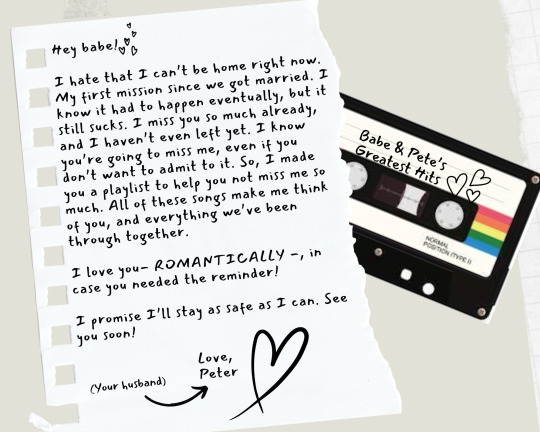 Hey babe!
I hate that I can't be home right now.
My first mission since we got married. I
know it had to happen eventually, but it
still sucks. I miss you so much already,
and I haven't even left yet. I know
you're going to miss me, even if you
don't want to admit to it. So, I made
you a playlist to help you not miss me so
much. All of these songs make me think
of you, and everything we've been
through together.
I love you– ROMANTICALLY –, in
case you needed the reminder!
I promise I'll stay as safe as I can. See
you soon!
Love,
Peter
(Your husband)
Babe & Pete's
Greatest Hits
NORMAL
POSITION (TYPE I)